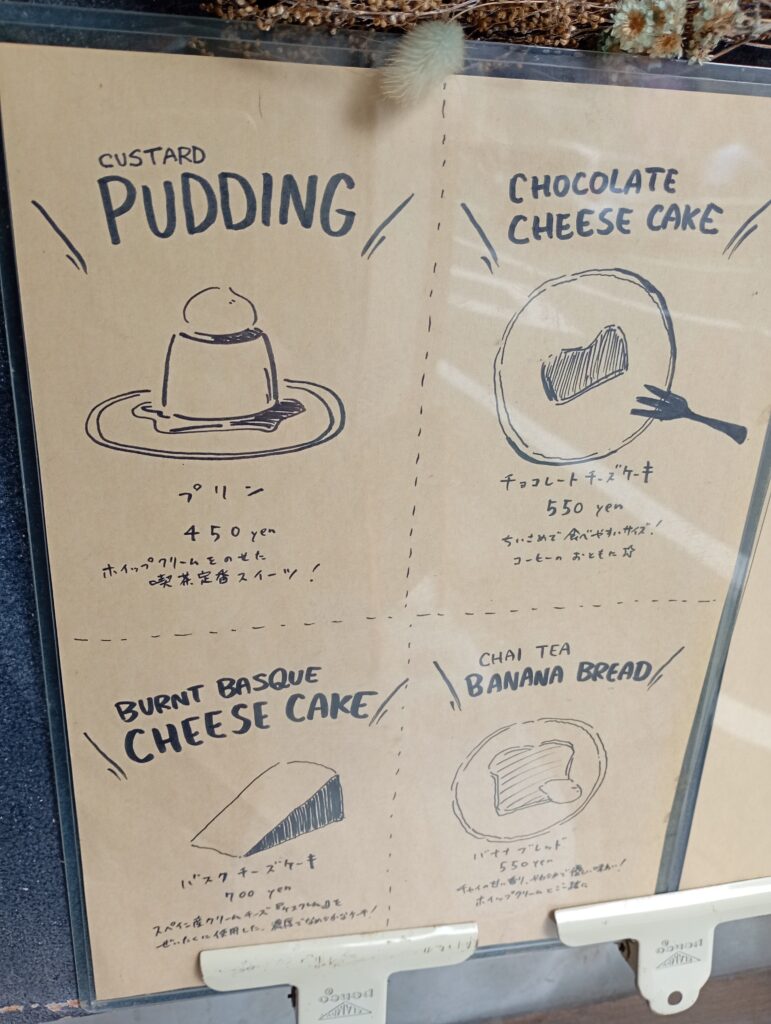 CUSTARD
PUDDING
プリン
450 yen
ホイップクリームをのせた
喫茶定番スイーツ！
CHOCOLATE
CHEESE CAKE
チョコレートチーズケーキ
550 yen
ちいさめで食べやすいサイズ！
コーヒーのおともに☆
BURNT BASQUE
CHEESE CAKE
バスクチーズケーキ
700 yen
スペイン産クリームチーズ
ぜいたくに使用した、濃厚でなめらかなケーキ！
CHAI TEA
BANANA BREAD
バナナブレッド
550 yen
チャイの甘い香り、やわらかで優しい味わい！
ホイップクリームとご一緒に
PENCO